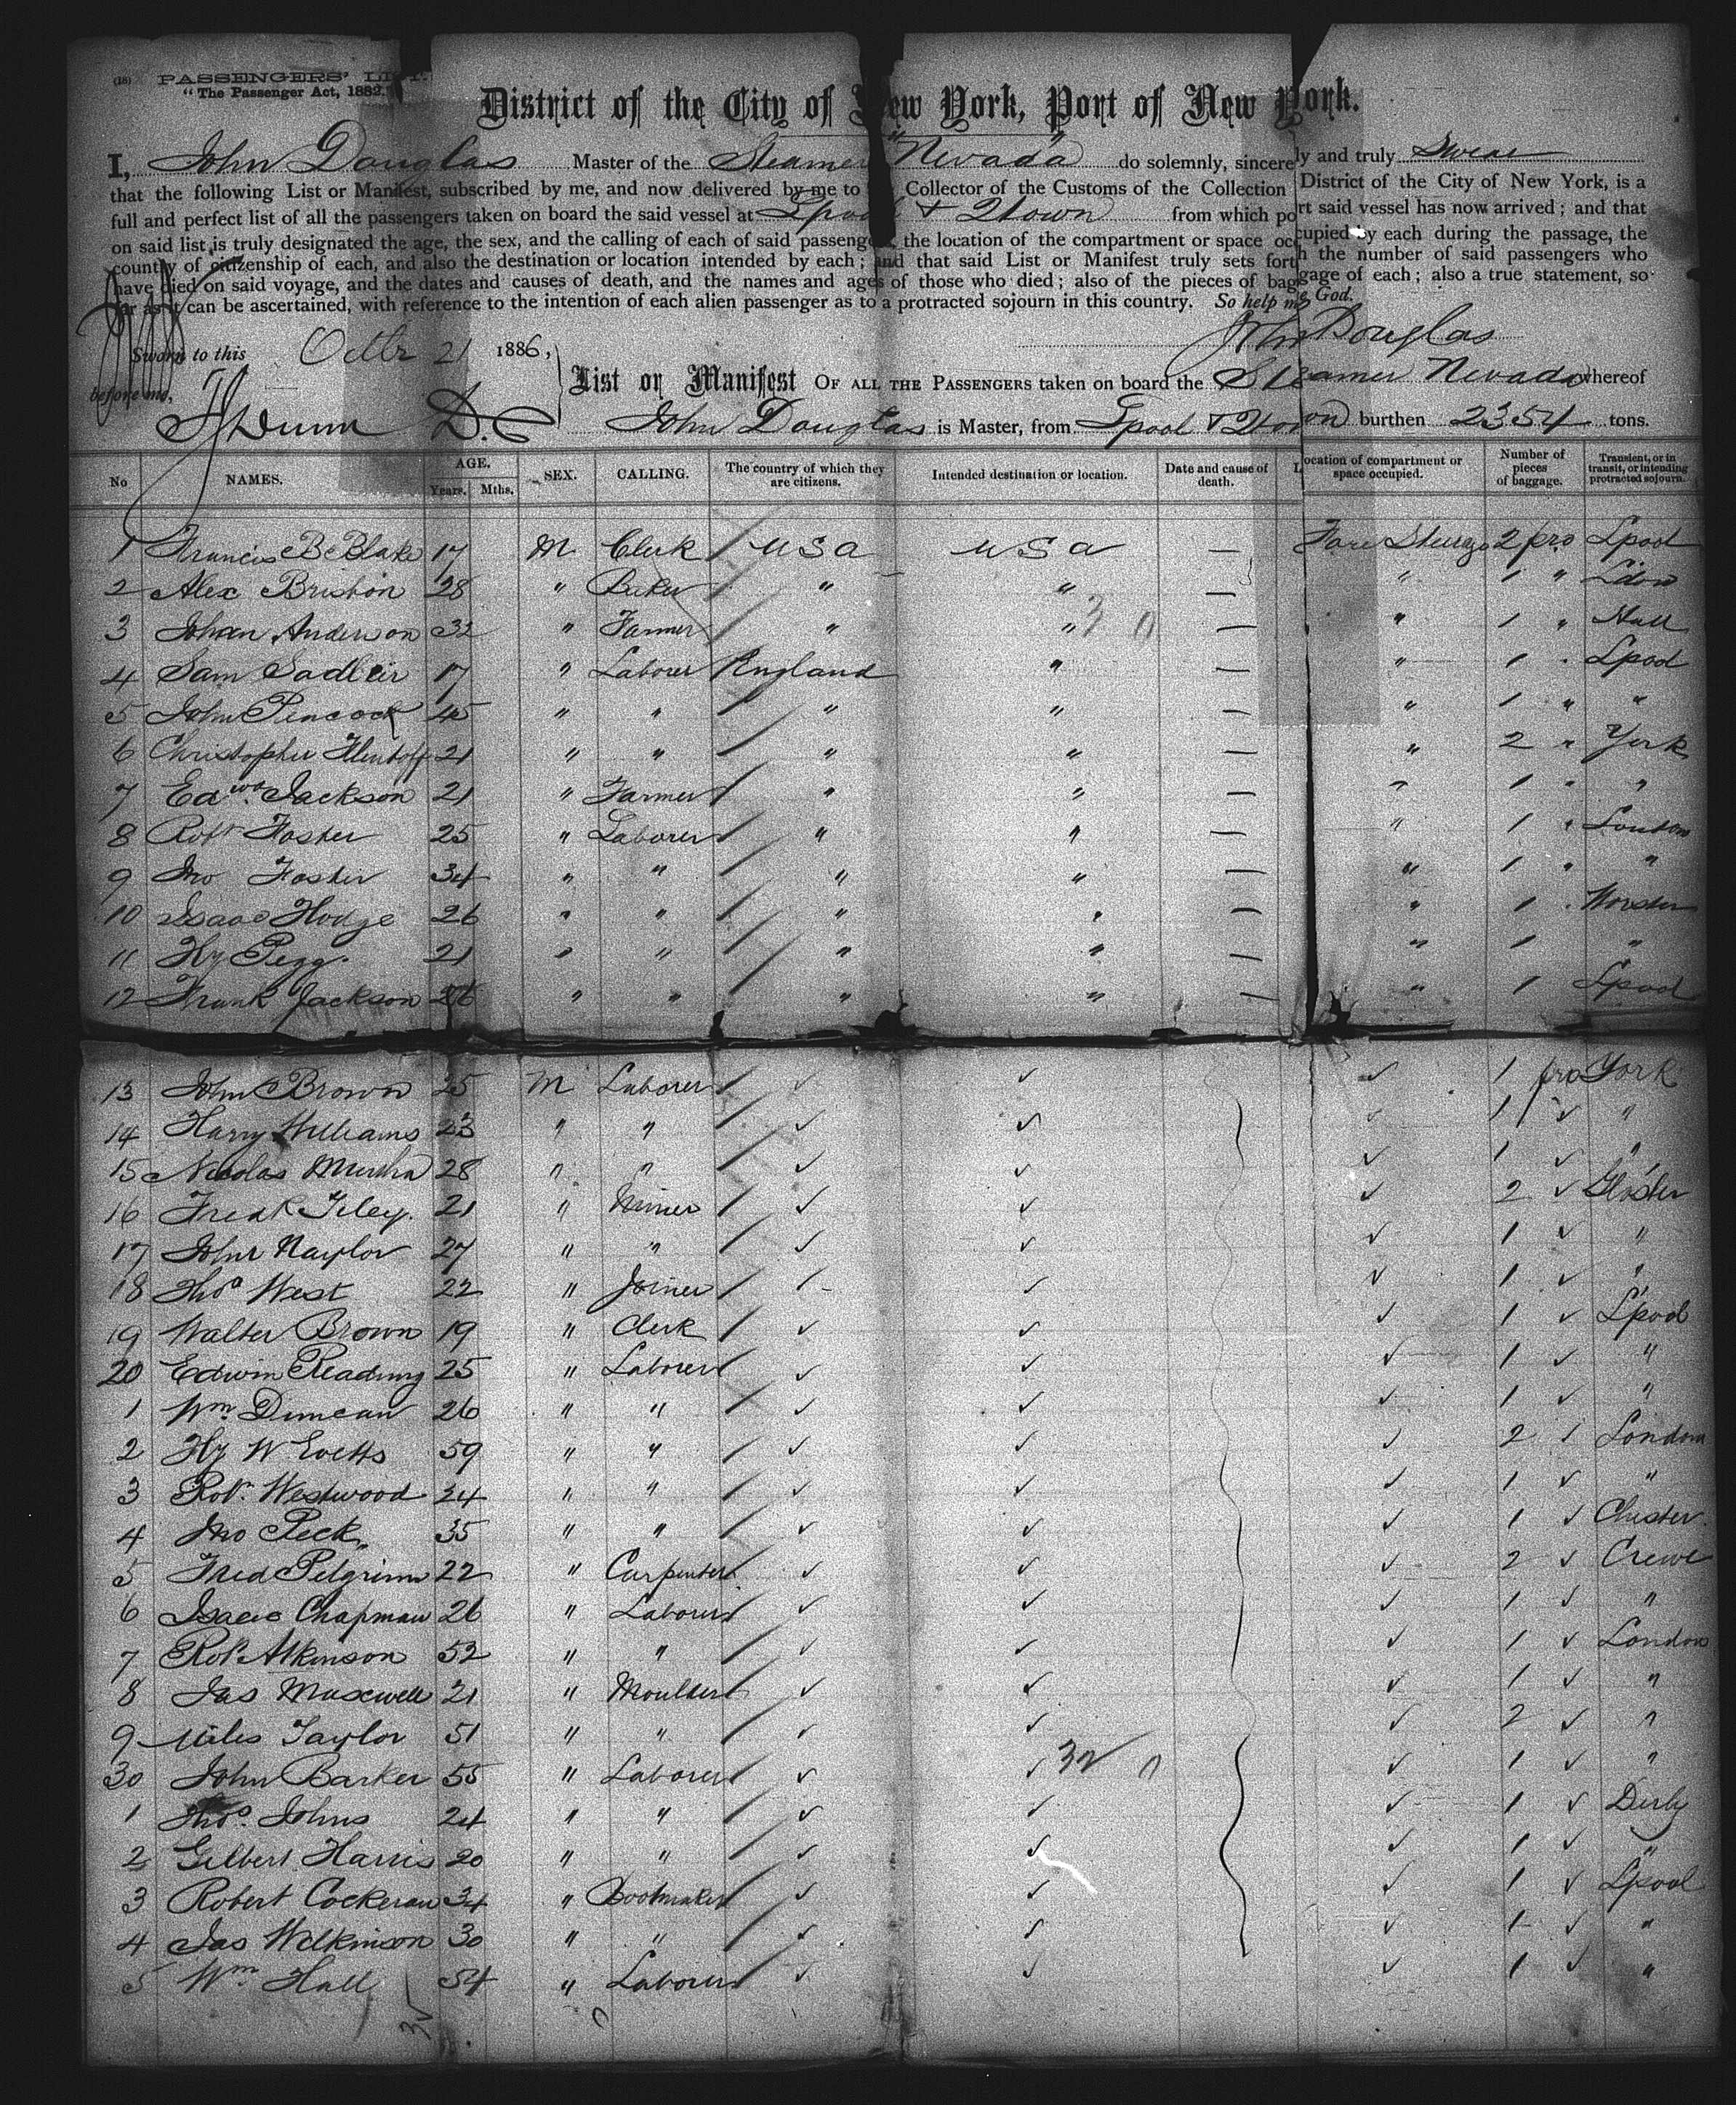 (18) PASSENGERS' LIST.
"The Passenger Act, 1882."
District of the City of New York, Port of New York.
I, John Douglas Master of the Steamer "Nevada" do solemnly, sincerely and truly Swear
that the following List or Manifest, subscribed by me, and now delivered by me to the Collector of the Customs of the Collection District of the City of New York, is a
full and perfect list of all the passengers taken on board the said vessel at Lpool & Qtown from which port said vessel has now arrived; and that
on said list is truly designated the age, the sex, and the calling of each of said passengers, the location of the compartment or space occupied by each during the passage, the
country of citizenship of each, and also the destination or location intended by each; and that said List or Manifest truly sets forth the number of said passengers who
have died on said voyage, and the dates and causes of death, and the names and ages of those who died; also of the pieces of baggage of each; also a true statement, so
far as it can be ascertained, with reference to the intention of each alien passenger as to a protracted sojourn in this country. So help me God.
John Douglas
Sworn to this Octbr 21 1886,
before me,
List or Manifest OF ALL THE PASSENGERS taken on board the Steamer Nevada whereof
John Douglas is Master, from Lpool & Qtown burthen 2354 tons.
No NAMES. AGE. Years. Mths. SEX. CALLING. The country of which they are citizens. Intended destination or location. Date and cause of death. Location of compartment or space occupied. Number of pieces of baggage. Transient, or in transit, or intending protracted sojourn.
1 Francis B Blake 17 M Clerk / U S a U S a — Fore Steerage 2 pro Lpool
2 Alex Brisbon 28 " Baker / " " — " 1 " L'don
3 Johan Anderson 32 " Farmer / " " — " 1 " Hull
4 Sam Sadleir 17 " Laborer England " — " 1 " Lpool
5 John Pencock 45 " " / " " — " 1 " "
6 Christopher 21 " " / " " — " 2 " York
7 Edwd Jackson 21 " Farmer / " " — " 1 " "
8 Robt Foster 25 " Laborer / " " — " 1 " London
9 Jno Foster 34 " " / " " — " 1 " "
10 Isaac Hodge 26 " " / " " — " 1 "
11 Hy Pegg. 21 " " / " " — " 1 "
12 Frank Jackson 26 " " / " " — " 1 Lpool
13 John Brown 25 M Laborer / ✓ ✓ ✓ 1 pro York
14 Harry Williams 23 " " / ✓ ✓ ✓ 1 ✓ "
15 Nicolas 28 " " / ✓ ✓ ✓ 1 ✓ "
16 Fredk Tiley. 21 " Miner / ✓ ✓ ✓ 2 ✓ Gloster
17 John Naylor 27 " " / ✓ ✓ ✓ 1 ✓ "
18 Thos West 22 " Joiner / ✓ ✓ ✓ 1 ✓ "
19 Walter Brown 19 " Clerk / ✓ ✓ ✓ 1 ✓ L'pool
20 Edwin Reading 25 " Laborer / ✓ ✓ ✓ 1 ✓ "
1 Wm Duncan 26 " " / ✓ ✓ ✓ 1 ✓ "
2 Hy W Evetts 59 " " / ✓ ✓ ✓ 2 ✓ London
3 Robt. Westwood 24 " " / ✓ ✓ ✓ 1 ✓ "
4 Jno Peck 35 " " / ✓ ✓ ✓ 1 ✓ Chester
5 Fred Pelgrim 22 " Carpenter / ✓ ✓ ✓ 2 ✓ Crewe
6 Isaac Chapman 26 " Laborer / ✓ ✓ ✓ 1 ✓ "
7 Robt Atkinson 52 " " / ✓ ✓ ✓ 1 ✓ London
8 Jas Maxwell 21 " Moulder / ✓ ✓ ✓ 1 ✓ "
9 Miles Taylor 51 " " / ✓ ✓ ✓ 2 ✓ "
30 John Barker 55 " Laborer / ✓ ✓ ✓ 1 ✓ "
1 Thos. Johns 24 " " / ✓ ✓ ✓ 1 ✓ Derby
2 Gilbert Harris 20 " " / ✓ ✓ ✓ 1 ✓ "
3 Robert Cockeran 34 " Bootmaker / ✓ ✓ ✓ 1 ✓ Lpool
4 Jas Wilkinson 30 " " / ✓ ✓ ✓ 1 ✓ "
5 Wm Hall 54 " Laborer / ✓ ✓ ✓ 1 ✓ "